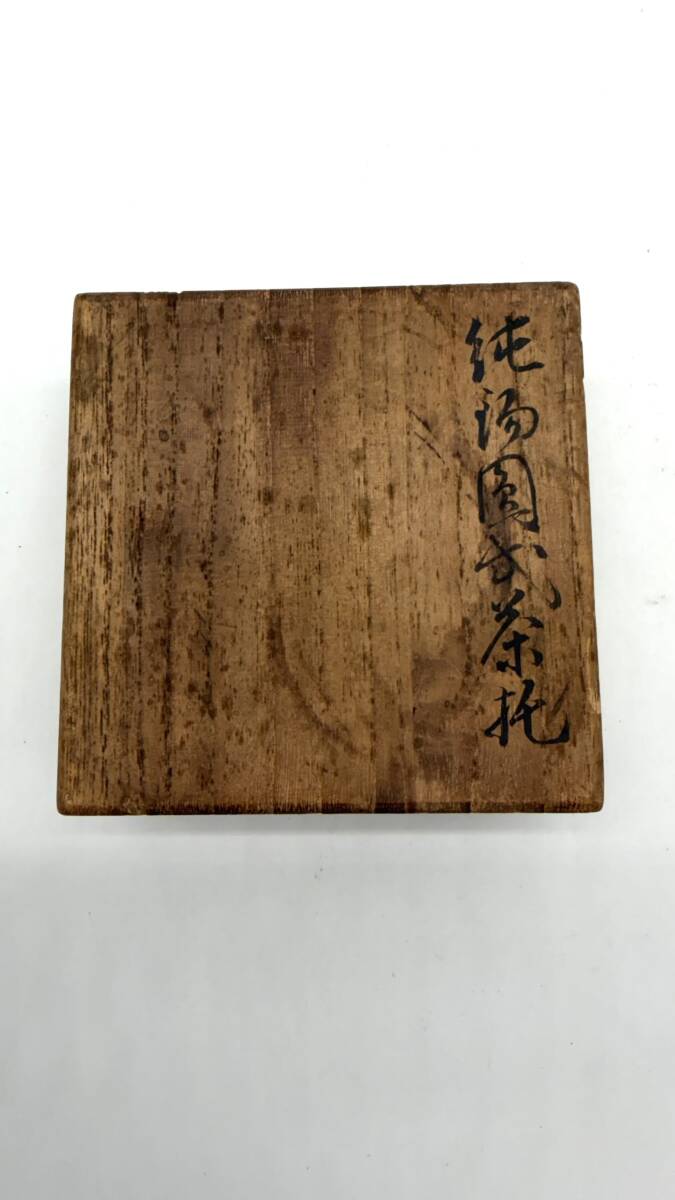 純錫圓式茶托